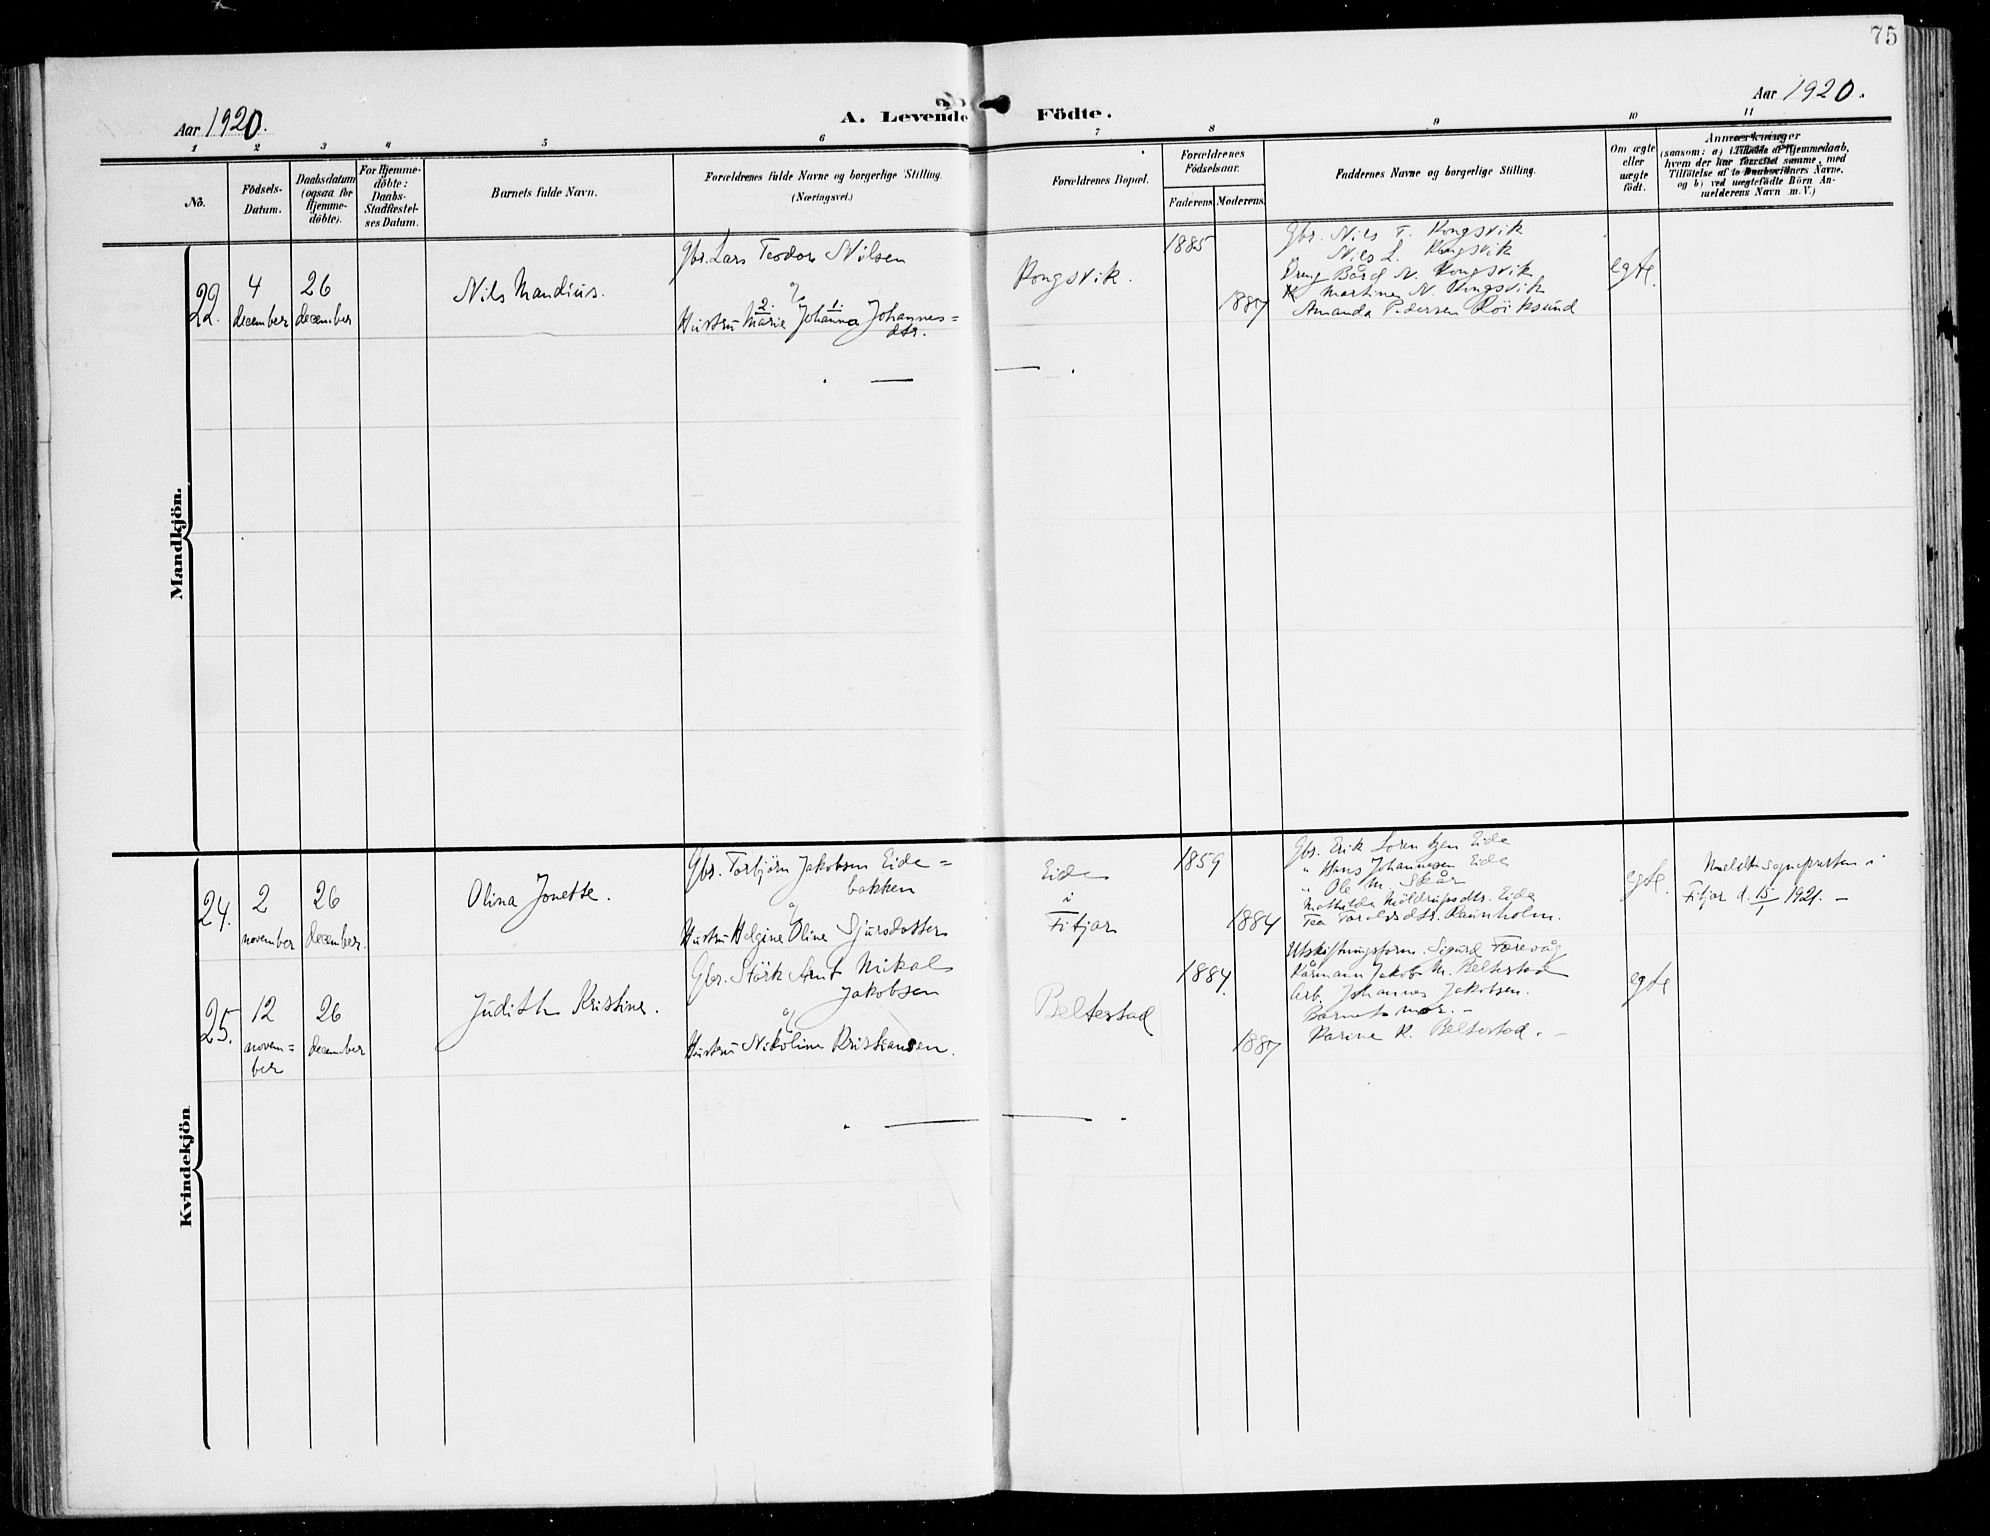 75
Aar 1920.
A. Levende Födte.
Aar 1920.
1 2 3 4 5 6 7 8 9 10 11
No.
Födsels-
Datum.
Daabsdatum
(ogsaa for
Hjemme-
döbte).
For Hjemme-
döbte:
Daabs-
Stadfæstel-
ses Datum.
Barnets fulde Navn.
Forældrenes fulde Navne og borgerlige Stilling.
(Næringsvei.)
Forældrenes Bopæl.
Forældrenes
Födselsaar.
Faderens
Moderens.
Faddernes Navne og borgerlige Stilling.
Om ægte
eller
uægte
födt.
Anmærkninger
(saasom: a) Tilfælde af Hjemmedaab,
hvem der har forrettet samme, med
Tilföielse af to Daabsvidners Navne.
og b) ved uægtefödte Börn An-
melderens Navn m. V.)
Mandkjön.
22.
4
december
26
december
Nils Mandius.
Gbr. Lars Teodor Nilsen
&
Hustru Marie Johanna Johannes=
dtr.
2 1.
Kongsvik.
1885
1887
Gbr. Nils T. Kongsvik
Nils L. Kongsvik
Dreng Bård N. Kongsvik
Martine N. Kongsvik
Amanda Pedersen Röiksund
egte.
Kvindekjön
24.
2
november
26
december.
Olina Jonette.
Gbr. Torbjörn Jakobsen Eide=
bakken
&
Hustru Helgine Oline Sjursdotter
Eide
i
Fitjar
1859
1884
Gbr. Erik Lorentzen Eide
" Hans Johannesen Eide
" Ole M. Skår
Mathilde Möldrupsdtr. Eide
Tea Toralvsdtr. Raunholm.
egte.
Meldt sognepresten i
Fitjar d. 15/1 1921. —
25.
12
novem=
ber
26
december
Judith Kristine.
Gbr. Störk Arnt Mikal
Jakobsen
&
Hustru Nikoline Kristiansen.
Beltestad
1884.
1887
Utskiftningsform. Sigurd Forevåg
Kårmann Jakob M. Beltestad
Arb. Johannes Jakobsen.
Barnets mor. —
Karine K. Beltestad. —
egte